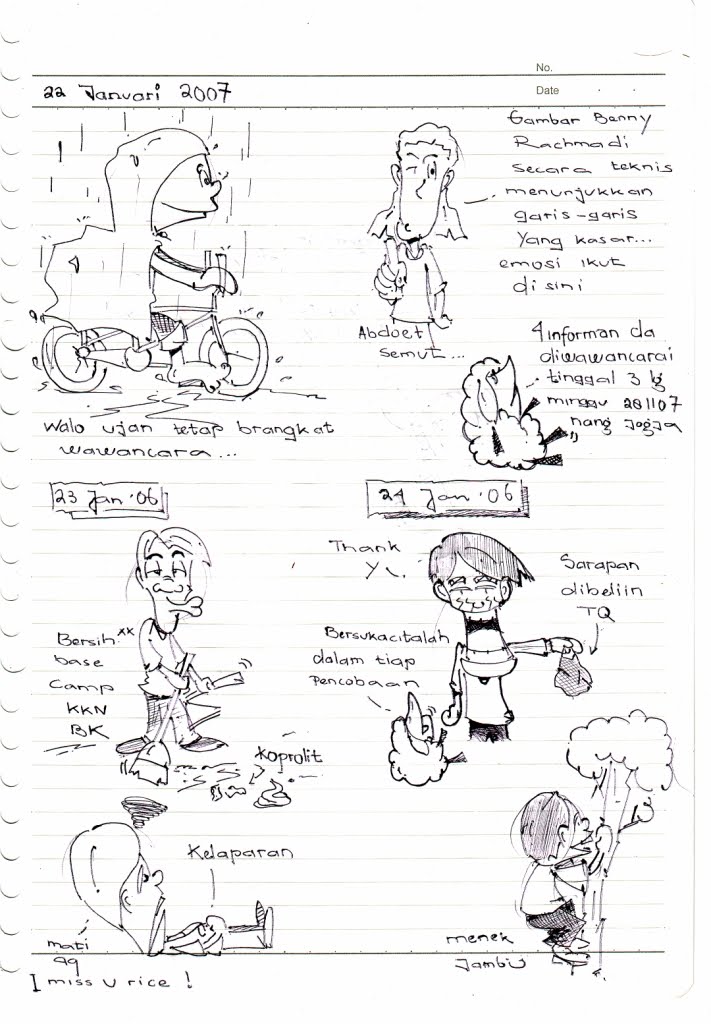 No.
Date
22 Januari 2007
Gambar Benny
Rachmadi
secara teknis
menunjukkan
garis-garis
yang kasar...
emosi ikut
disini
Abdoet
semut...
4 informan da
diwawancarai
tinggal 3 lg
minggu 281107
nang Jogja
walo ujan tetap brangkat
wawancara...
23 Jan '06
24 Jan '06
Thank
Sarapan
dibeliin
TQ
Bersih xx
base
camp
KKN
BK
Bersukacitalah
dalam tiap
pencobaan
koprolit
Kelaparan
mati
menek
Jambu
I miss u rice !